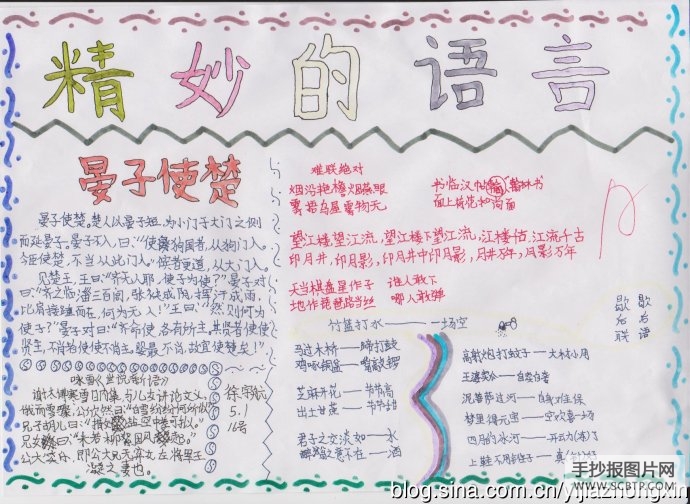 精妙的语言
晏子使楚
晏子使楚。楚人以晏子短，为小门子大门之侧
而延晏子。晏子不入，曰：“使狗国者，从狗门入。
今臣使楚，不当从此门入。”傧者更道，从大门入。
见楚王，王曰：“齐无人耶，使子为使？”晏子对
曰：“齐之临淄三百闾，张袂成阴，挥汗成雨，
比肩接踵而在，何为无人！”王曰：“然则何为
使子？”晏子对曰：“齐命使，各有所主，其贤者使使
贤王，不肖者使使不肖王。婴最不肖，故宜使楚矣！”
咏雪《世说新语》
俄而雪骤，公欣然曰：“白雪纷纷何所似
公大笑曰，即公大兄无奕女，左将军王
凝之妻也。
徐宇航
5.1
16号
难联绝对
烟沿艳檐烟燕眼
雾捂乌屋雾物无
书临汉帖翰林书
面上荷花和尚画
望江楼，望江流，望江楼下望江流，江楼千古，江流千古
印月井，印月影，印月井中印月影，月井万年，月影万年
天当棋盘星作子 谁人敢下
地作琵琶路当丝 哪人敢弹
歇后语
歇后联
竹篮打水——一场空
马过木桥——蹄打鼓
鸡啄铜盆——嘴敲锣
芝麻开花——节节高
出土甘蔗——节节甜
君子之交淡如——水
高射炮打蚊子——大材小用
王婆卖瓜——自卖自夸
泥菩萨过河——自身难保
梦里得元宝——空欢喜一场
手抄报图片网
WWW.SCBTP.COM
blog.sina.com.cn/yijiazhongxin